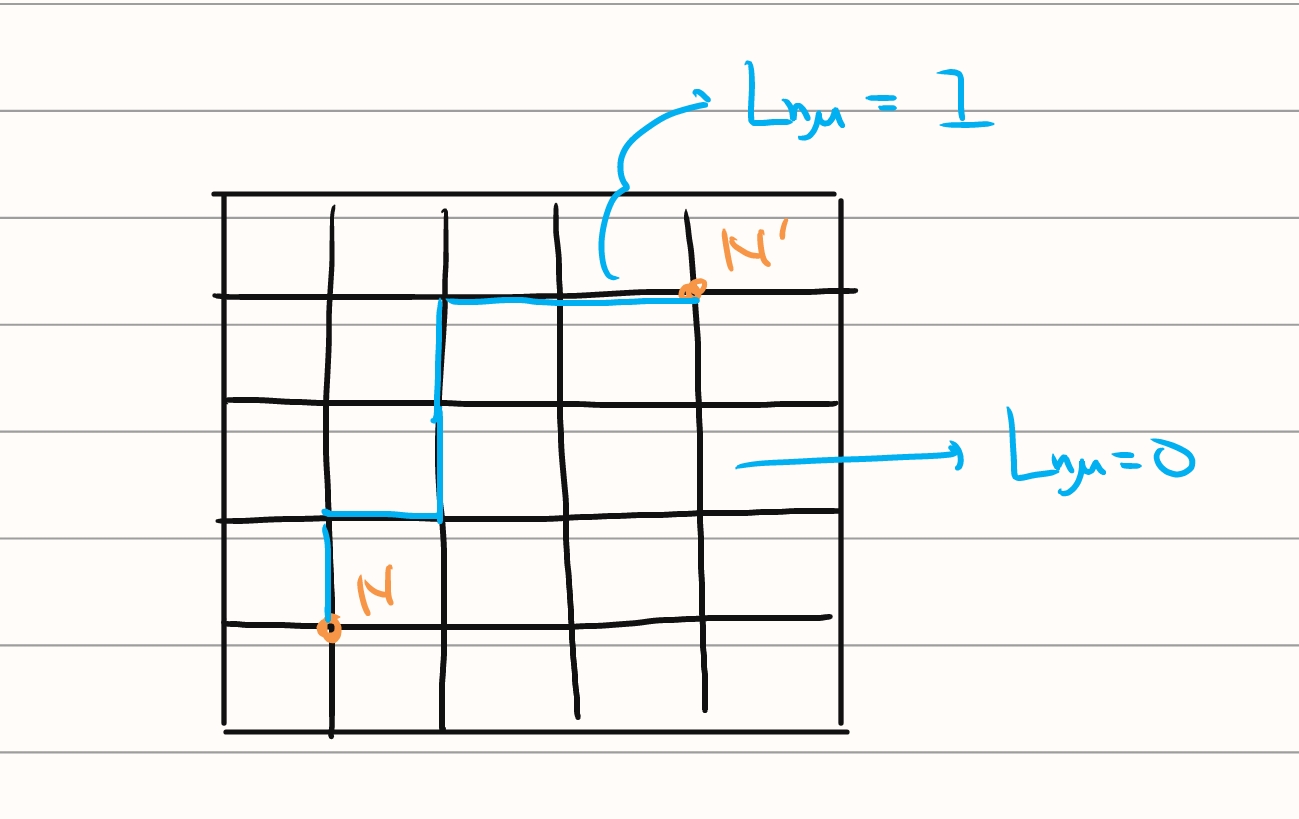 Lnμ = 1
N'
Lnμ = 0
N